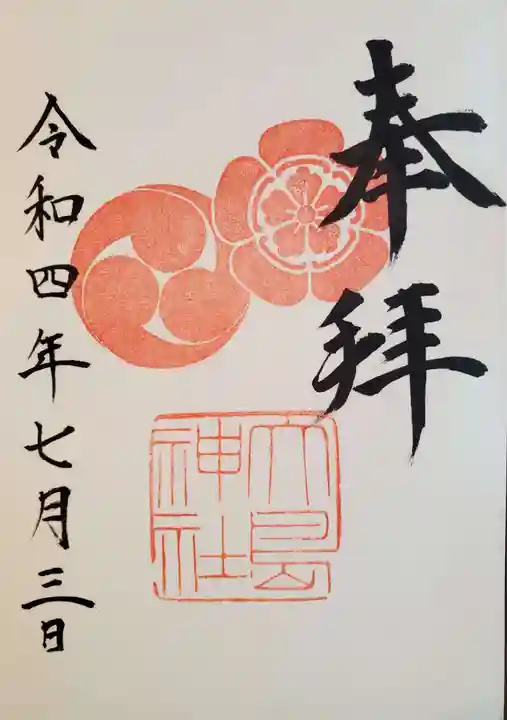 奉拝
大島
神社
令和四年七月三日